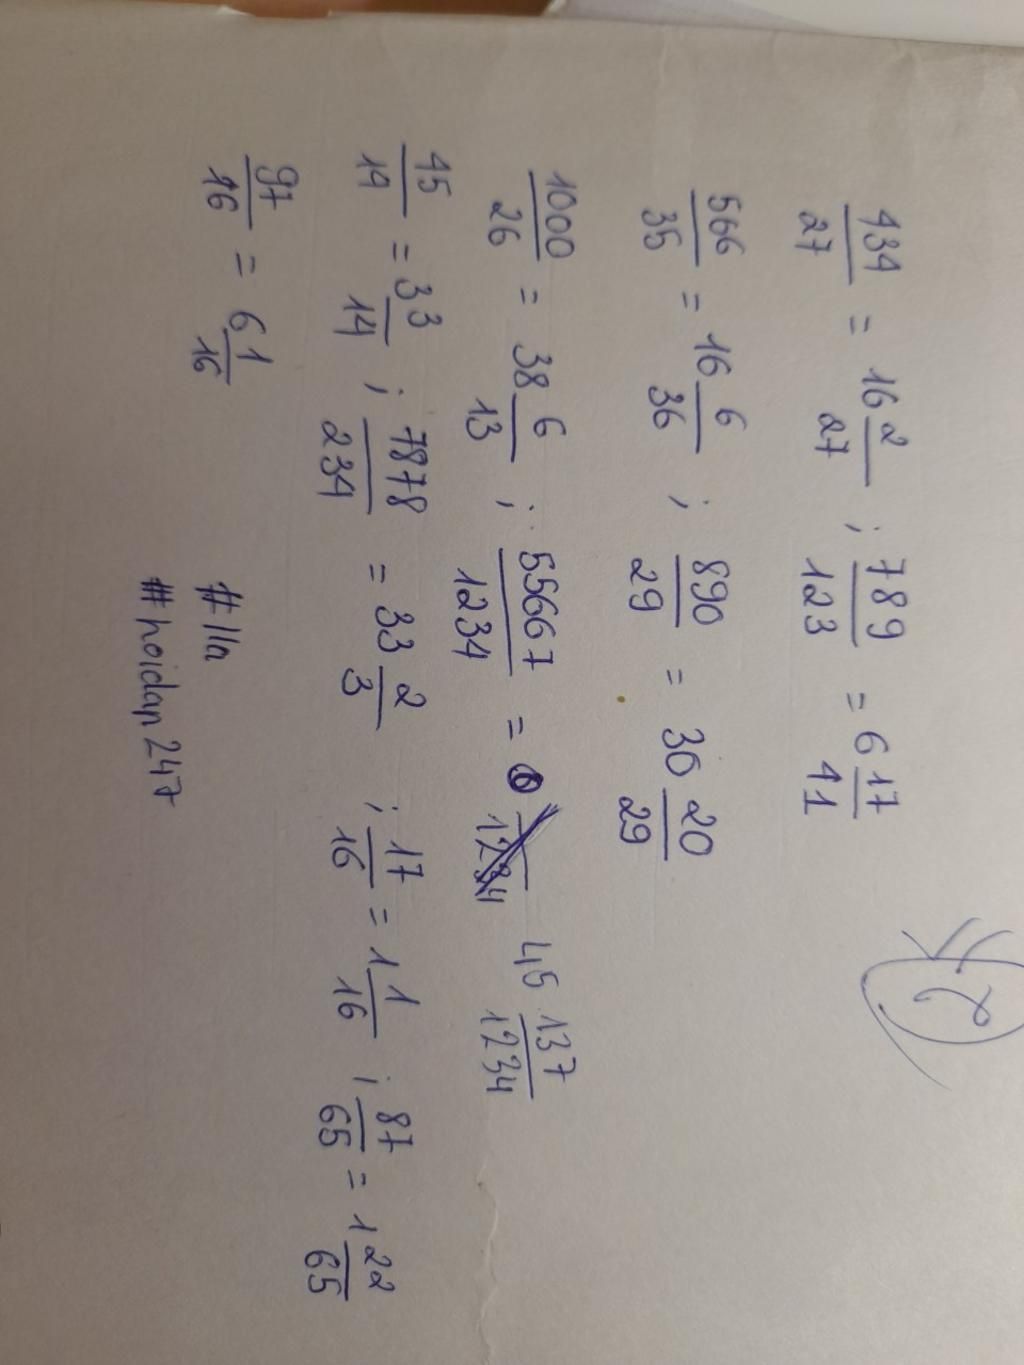 2
434/27 = 16 2/27 ; 789/123 = 6 17/41
566/35 = 16 6/36 ; 890/29 = 30 20/29
1000/26 = 38 6/13 ; 55667/1234 = 45 137/1234
45/14 = 3 3/14 ; 7878/234 = 33 2/3 ; 17/16 = 1 1/16 ; 87/65 = 1 22/65
97/16 = 6 1/16
#lla
#hoidap247